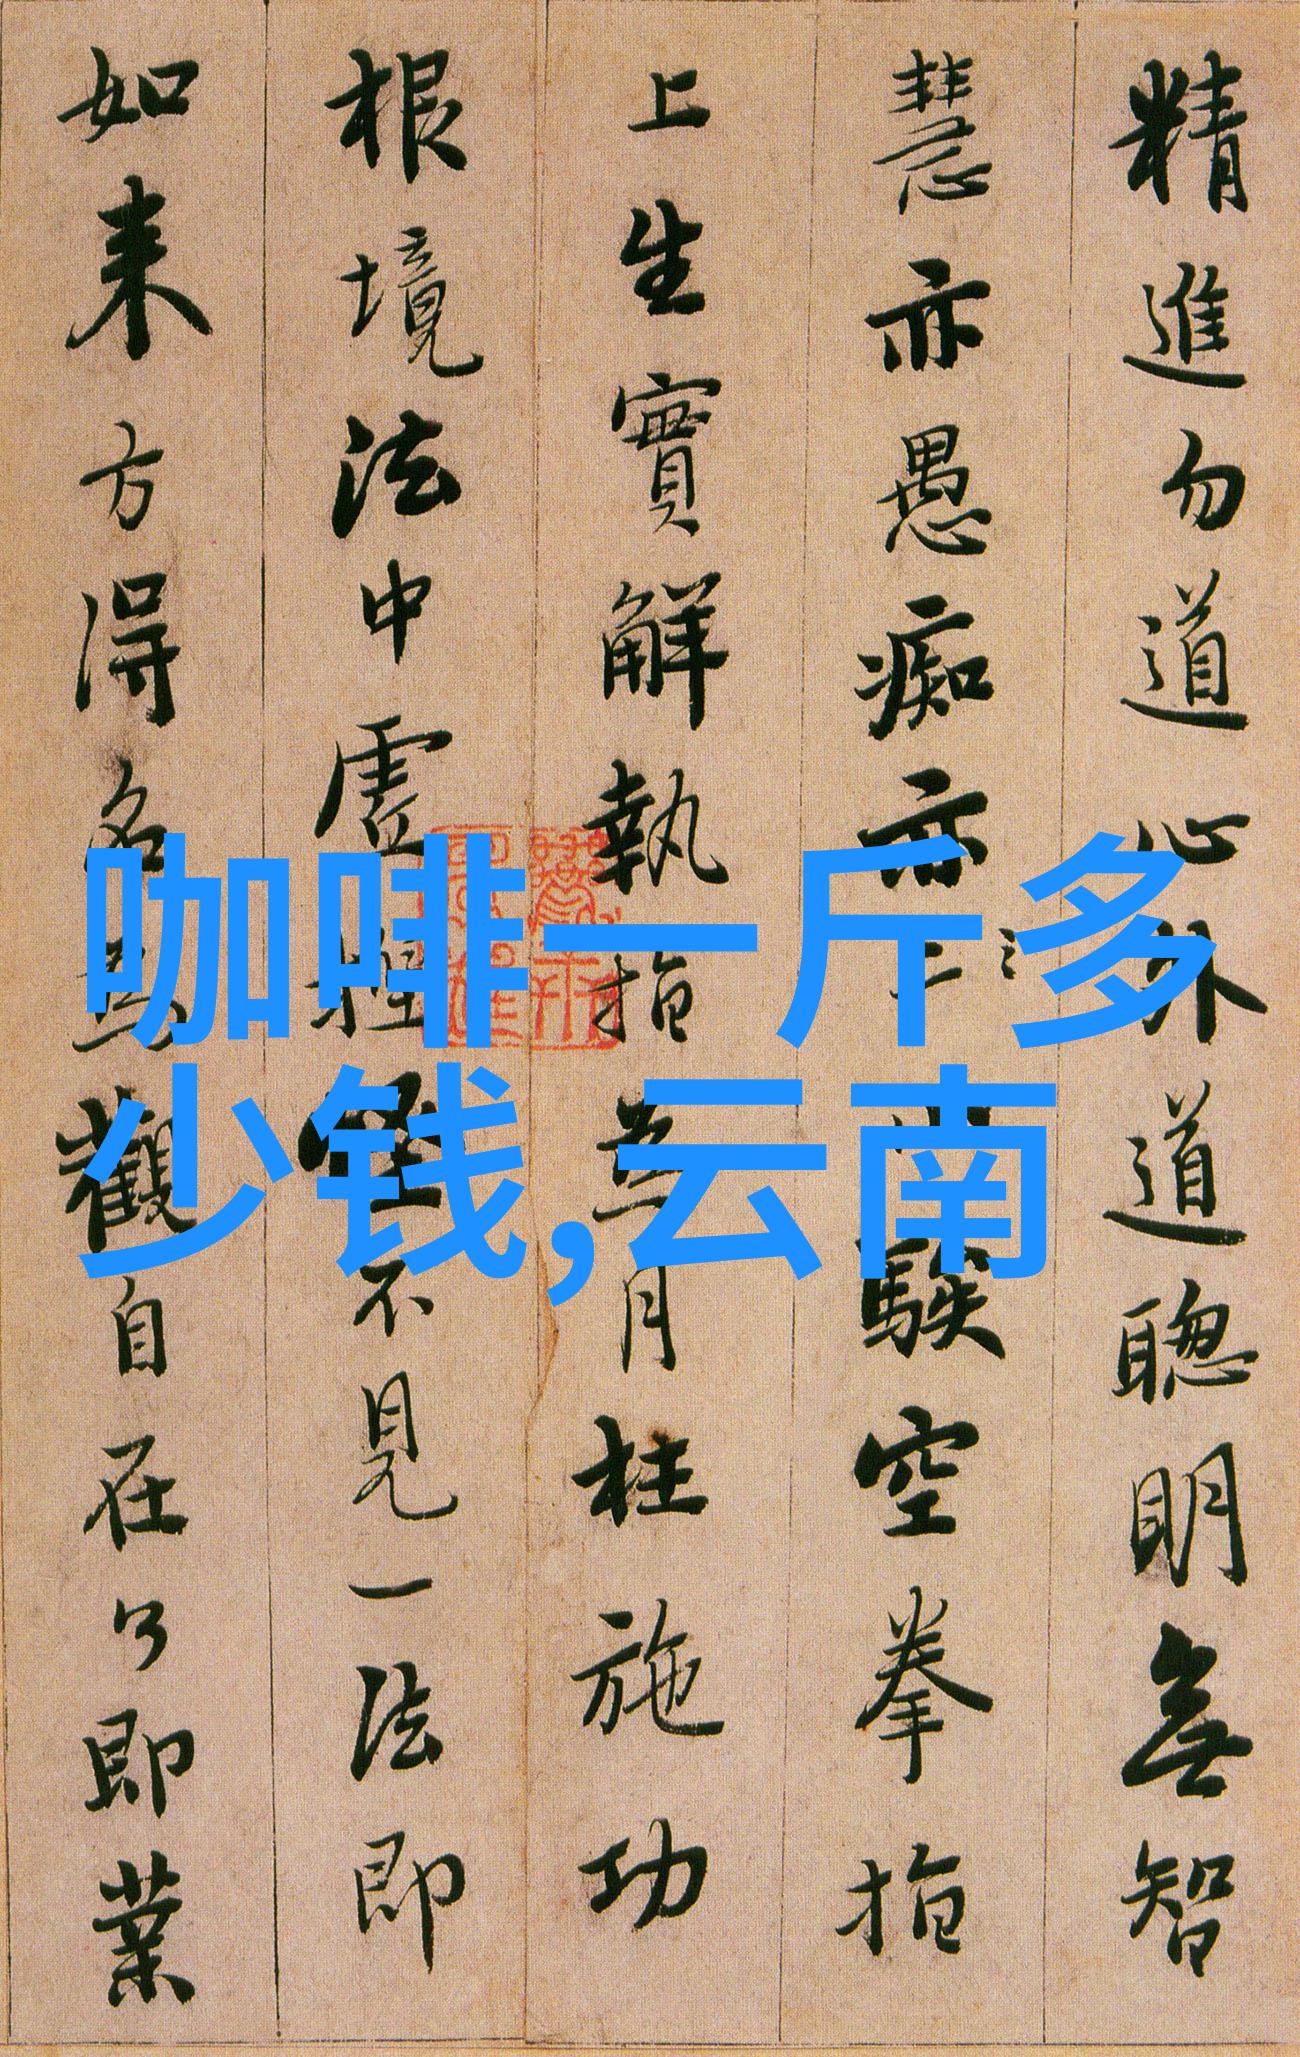 精進勿道心外道聰明無智
慧亦愚痴亦小騃空拳指
上生實解執指為月枉施功
根境法中虛捏怪不見一法即
如来方得名為觀自在了即業
咖啡一斤多
少钱,云南